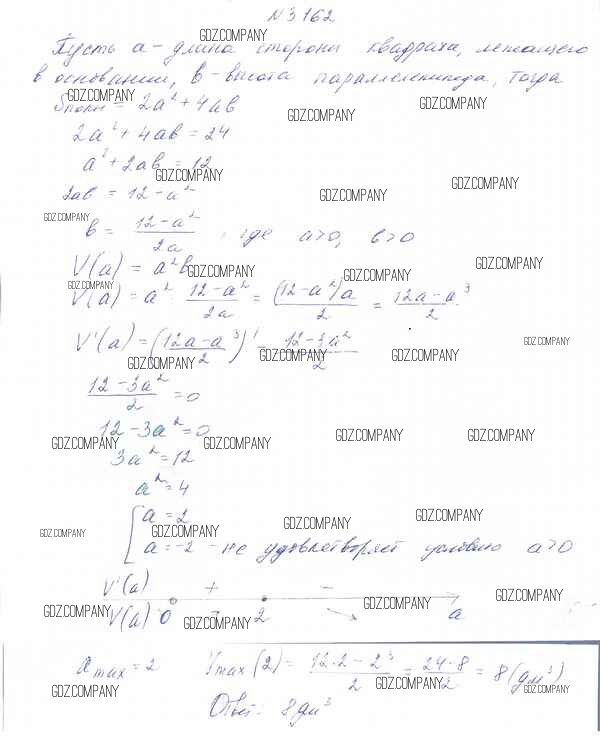 № 3162
Пусть a - длина стороны квадрата, лежащего
в основании, b - высота параллелепипеда, тогда
Sполн = 2a² + 4ab
2a² + 4ab = 24
a² + 2ab = 12
2ab = 12 - a²
b = (12 - a²)/2a, где a>0, b>0
V(a) = a²b
V(a) = a² · (12 - a²)/2a = (12 - a²)a/2 = (12a - a³)/2
V'(a) = ((12a - a³)/2)' = (12 - 3a²)/2
(12 - 3a²)/2 = 0
12 - 3a² = 0
3a² = 12
a² = 4
[ a = 2
a = -2 - не удовлетворяет условию a>0
V'(a) + -
V(a) 0 2 a
a max = 2 Vmax(2) = (12·2 - 2³)/2 = (24 - 8)/2 = 8 (дм³)
Ответ: 8 дм³
GDZ.COMPANY